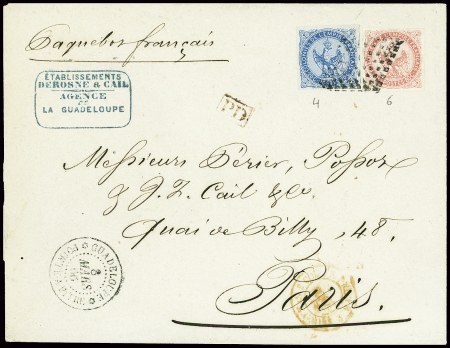 Paquebot français
ÉTABLISSEMENTS
DEROSNE & CAIL
AGENCE
DE
LA GUADELOUPE
P.D.
4
6
Messieurs Périer, Possoz
& J. F. Cail & Co.
Quai de Billy, 48.
Paris.
GUADELOUPE
8
MARS